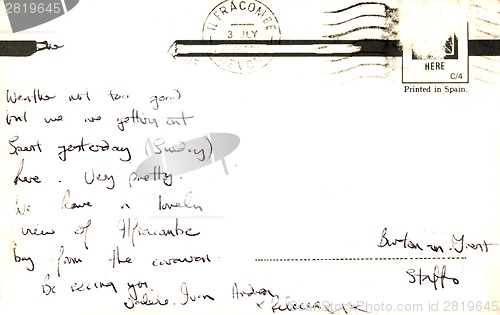 ILFRACOMBE
3 JLY
DEVON
HERE
C/4
Printed in Spain.
Weather not too good
but we are getting out
Spent yesterday (Sunday)
here. Very pretty.
We have a lovely
view of Ilfracombe
bay from the caravan.
Be seeing you
Ivan Andrew
x Rebecca
Burton on Trent
Staffs
2819645
2819645
2819645
2819645